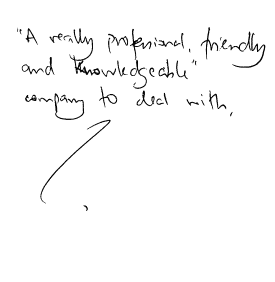 "A really professional, friendly
and knowledgeable"
company to deal with.